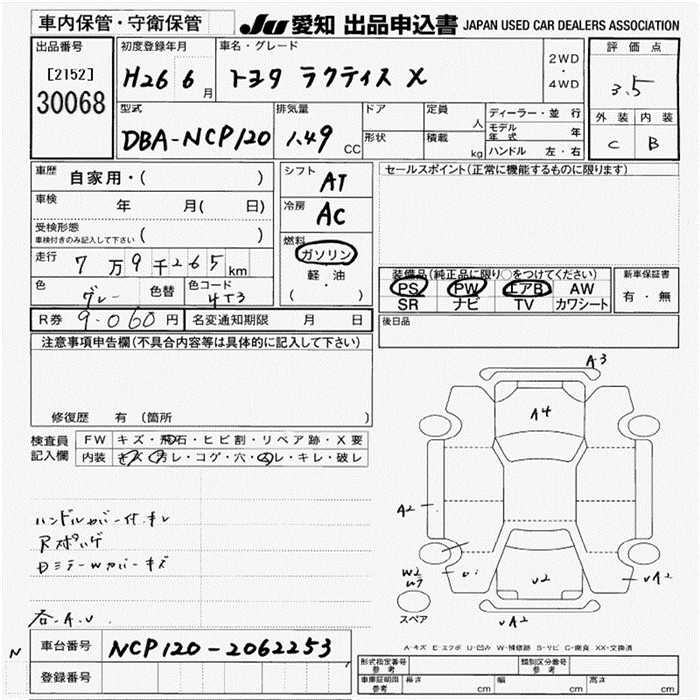 車内保管・守衛保管
JU 愛知 出品申込書 JAPAN USED CAR DEALERS ASSOCIATION
出品番号
[2152]
30068
初度登録年月
H26 6月
車名・グレード
トヨタ ラクティス X
2WD
・
4WD
評価点
3.5
外装 内装
C B
型式
DBA-NCP120
排気量
1.49 CC
ドア
定員 人
形状
積載 kg
ディーラー・並行
モデル年式 年
ハンドル 左・右
車歴 自家用・( )
車検 年 月( 日)
受検形態
車検付きのみ記入して下さい ( )
走行 7万9千265km
色 グレー 色替
色コード 4T3
シフト AT
冷房 AC
燃料
ガソリン
軽・油
( )
セールスポイント(正常に機能するものに限ります)
装備品(純正品に限り○をつけてください)
PS PW エアB AW
SR ナビ TV カワシート
新車保証書
有・無
R券 9,060円 名変通知期限 月 日
後日品
注意事項申告欄(不具合内容等は具体的に記入して下さい)
修復歴 有 (箇所 )
検査員
記入欄
FW キズ・飛石・ヒビ割・リペア跡・X要
内装 キズ・汚レ・コゲ・穴・スレ・キレ・破レ
ハンドルカバー付.キレ
Rスポハゲ
DミラーWカバーキズ
各.A.U
A3
A4
A2
W2
U7
U2
UA2
UA2
スペア
A-キズ E-エクボ U-凹み W-補修跡 S-サビ C-腐食 XX-交換済
N
車台番号 NCP120-2062253
登録番号
形式指定番号
参考
類別区分番号
参考
車庫証明用
参考
長さ cm 幅 cm 高さ cm